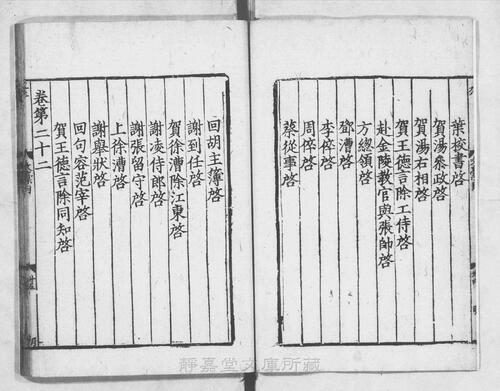 葉樞書啓
賀湯參政啓
賀湯右相啓
賀王德言除工侍啓
赴金陵教官與張帥啓
方總領啓
鄧漕啓
李倅啓
周倅啓
蔡從事啓
回胡主簿啓
謝到任啓
賀徐漕除江東啓
謝凌侍郎啓
謝張留守啓
上徐漕啓
謝舉狀啓
回句容范宰啓
賀王德言除同知啓
卷第二十二
靜嘉堂文庫所藏